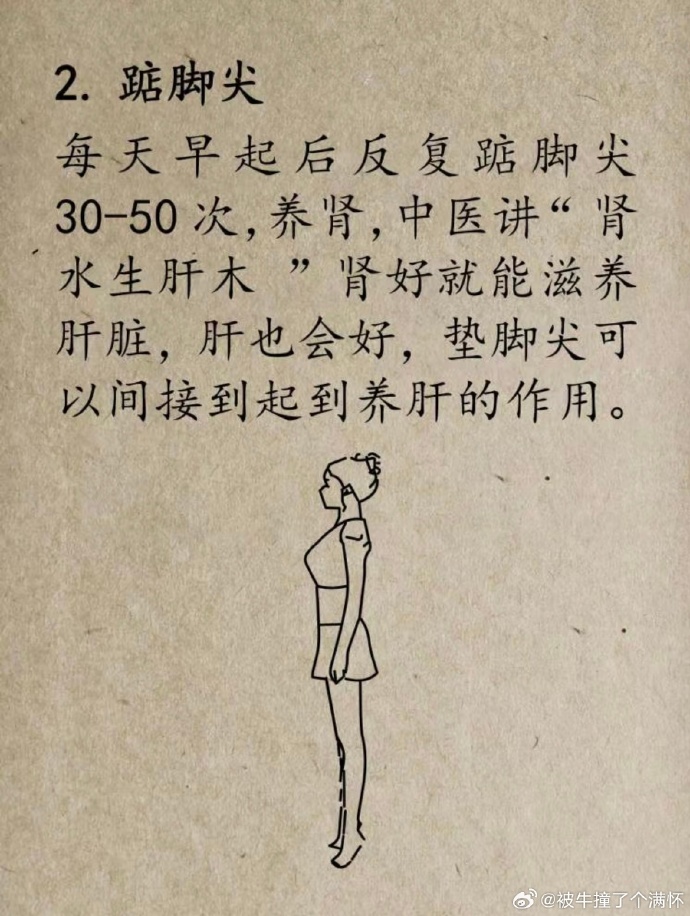 2. 踮脚尖
每天早起后反复踮脚尖
30-50次,养肾,中医讲“肾
水生肝木 ”肾好就能滋养
肝脏, 肝也会好, 垫脚尖可
以间接到起到养肝的作用。
@被牛撞了个满怀